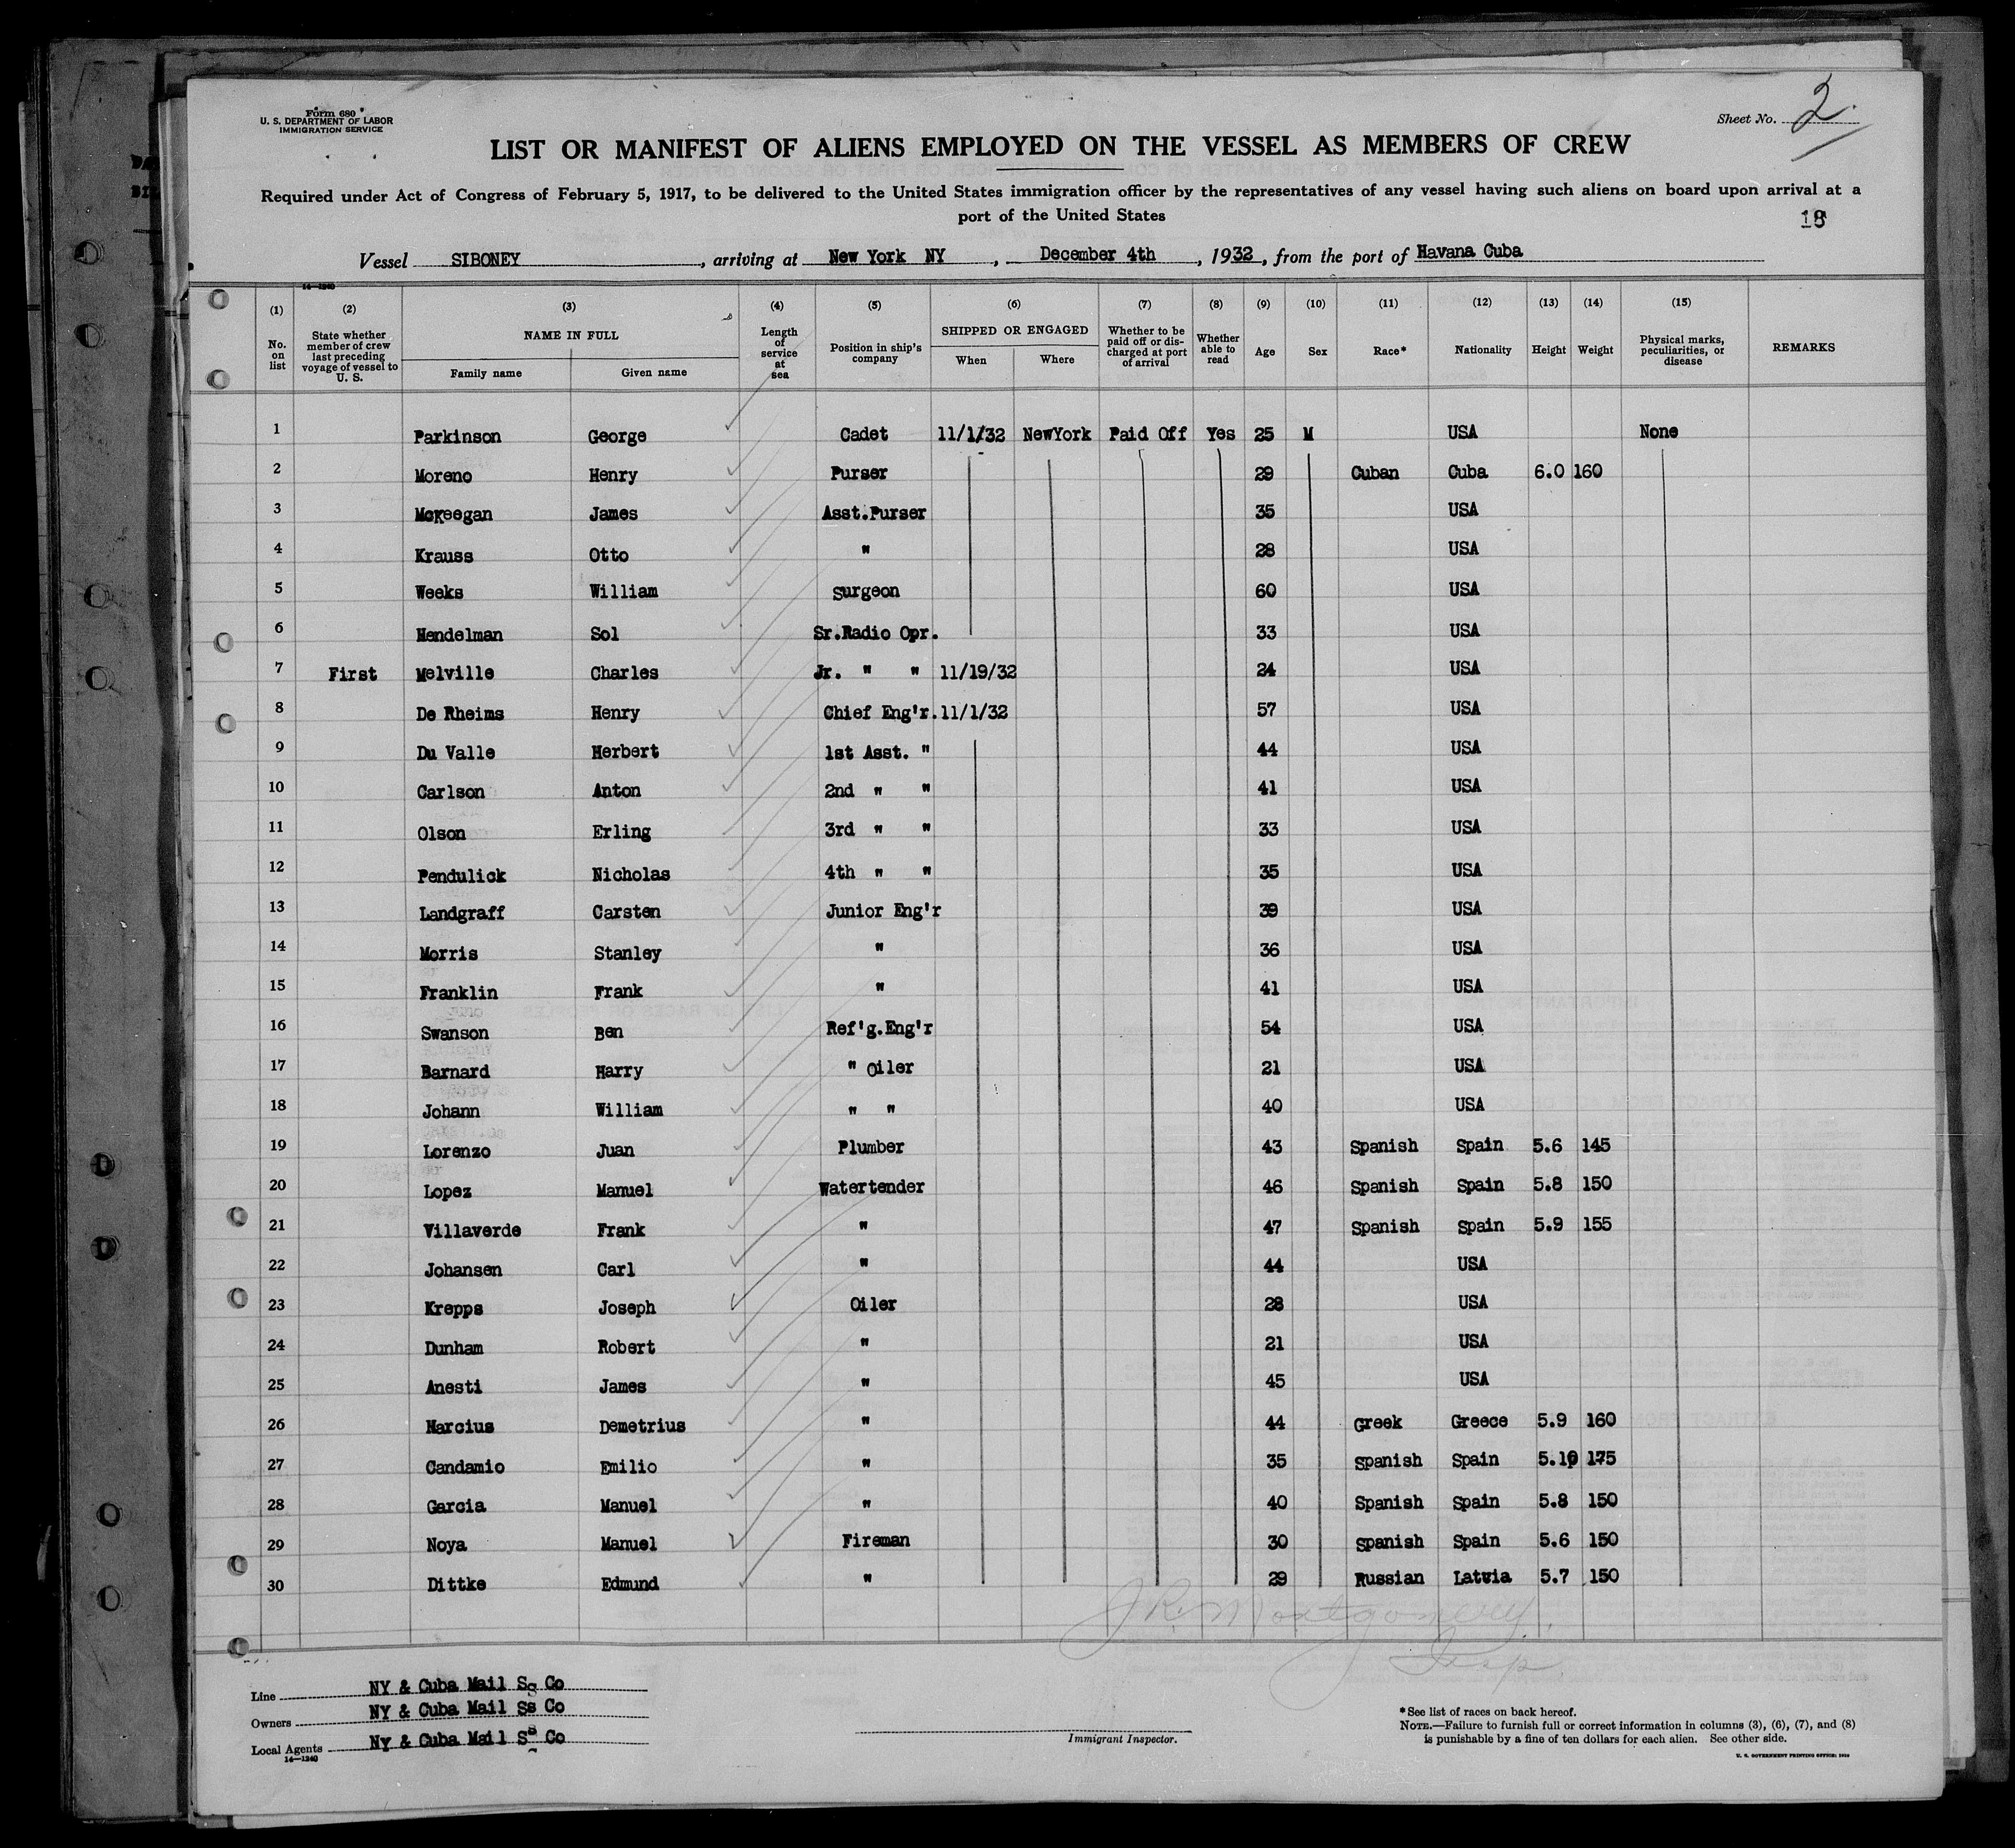 Form 680
U. S. DEPARTMENT OF LABOR
IMMIGRATION SERVICE
Sheet No. 2
LIST OR MANIFEST OF ALIENS EMPLOYED ON THE VESSEL AS MEMBERS OF CREW
Required under Act of Congress of February 5, 1917, to be delivered to the United States immigration officer by the representatives of any vessel having such aliens on board upon arrival at a
port of the United States
18
Vessel SIBONEY, arriving at New York NY, December 4th, 1932, from the port of Havana Cuba
14-1240
(1) (2) (3) (4) (5) (6) (7) (8) (9) (10) (11) (12) (13) (14) (15)
No. on list State whether member of crew last preceding voyage of vessel to U. S. NAME IN FULL Family name Given name Length of service at sea Position in ship's company SHIPPED OR ENGAGED When Where Whether to be paid off or discharged at port of arrival Whether able to read Age Sex Race* Nationality Height Weight Physical marks, peculiarities, or disease REMARKS
1 Parkinson George Cadet 11/1/32 NewYork Paid Off Yes 25 M USA None
2 Moreno Henry Purser 29 Cuban Cuba 6.0 160
3 McKeegan James Asst.Purser 35 USA
4 Krauss Otto " 28 USA
5 Weeks William Surgeon 60 USA
6 Mendelman Sol Sr.Radio Opr. 33 USA
7 First Melville Charles Jr. " " 11/19/32 24 USA
8 De Rheims Henry Chief Eng'r. 11/1/32 57 USA
9 Du Valle Herbert 1st Asst. " 44 USA
10 Carlson Anton 2nd " " 41 USA
11 Olson Erling 3rd " " 33 USA
12 Pendulick Nicholas 4th " " 35 USA
13 Landgraff Carsten Junior Eng'r 39 USA
14 Morris Stanley " 36 USA
15 Franklin Frank " 41 USA
16 Swanson Ben Ref'g.Eng'r 54 USA
17 Barnard Harry " Oiler 21 USA
18 Johann William " " 40 USA
19 Lorenzo Juan Plumber 43 Spanish Spain 5.6 145
20 Lopez Manuel Watertender 46 Spanish Spain 5.8 150
21 Villaverde Frank " 47 Spanish Spain 5.9 155
22 Johansen Carl " 44 USA
23 Krepps Joseph Oiler 28 USA
24 Dunham Robert " 21 USA
25 Anesti James " 45 USA
26 Narcius Demetrius " 44 Greek Greece 5.9 160
27 Candamio Emilio " 35 Spanish Spain 5.10 175
28 Garcia Manuel " 40 Spanish Spain 5.8 150
29 Noya Manuel Fireman 30 Spanish Spain 5.6 150
30 Dittke Edmund " 29 Russian Latvia 5.7 150
J.R. Montgomery
Insp.
Line NY & Cuba Mail SS Co
Owners NY & Cuba Mail SS Co
Local Agents NY & Cuba Mail SS Co
14-1240
Immigrant Inspector.
*See list of races on back hereof.
NOTE.—Failure to furnish full or correct information in columns (3), (6), (7), and (8)
is punishable by a fine of ten dollars for each alien. See other side.